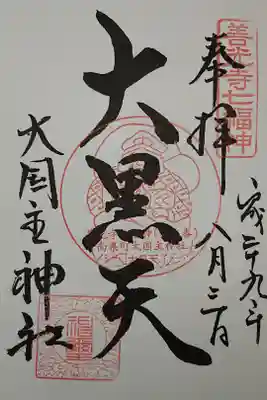 善光寺七福神
奉拝
平成二十九年
八月三日
大黒天
大国主神社